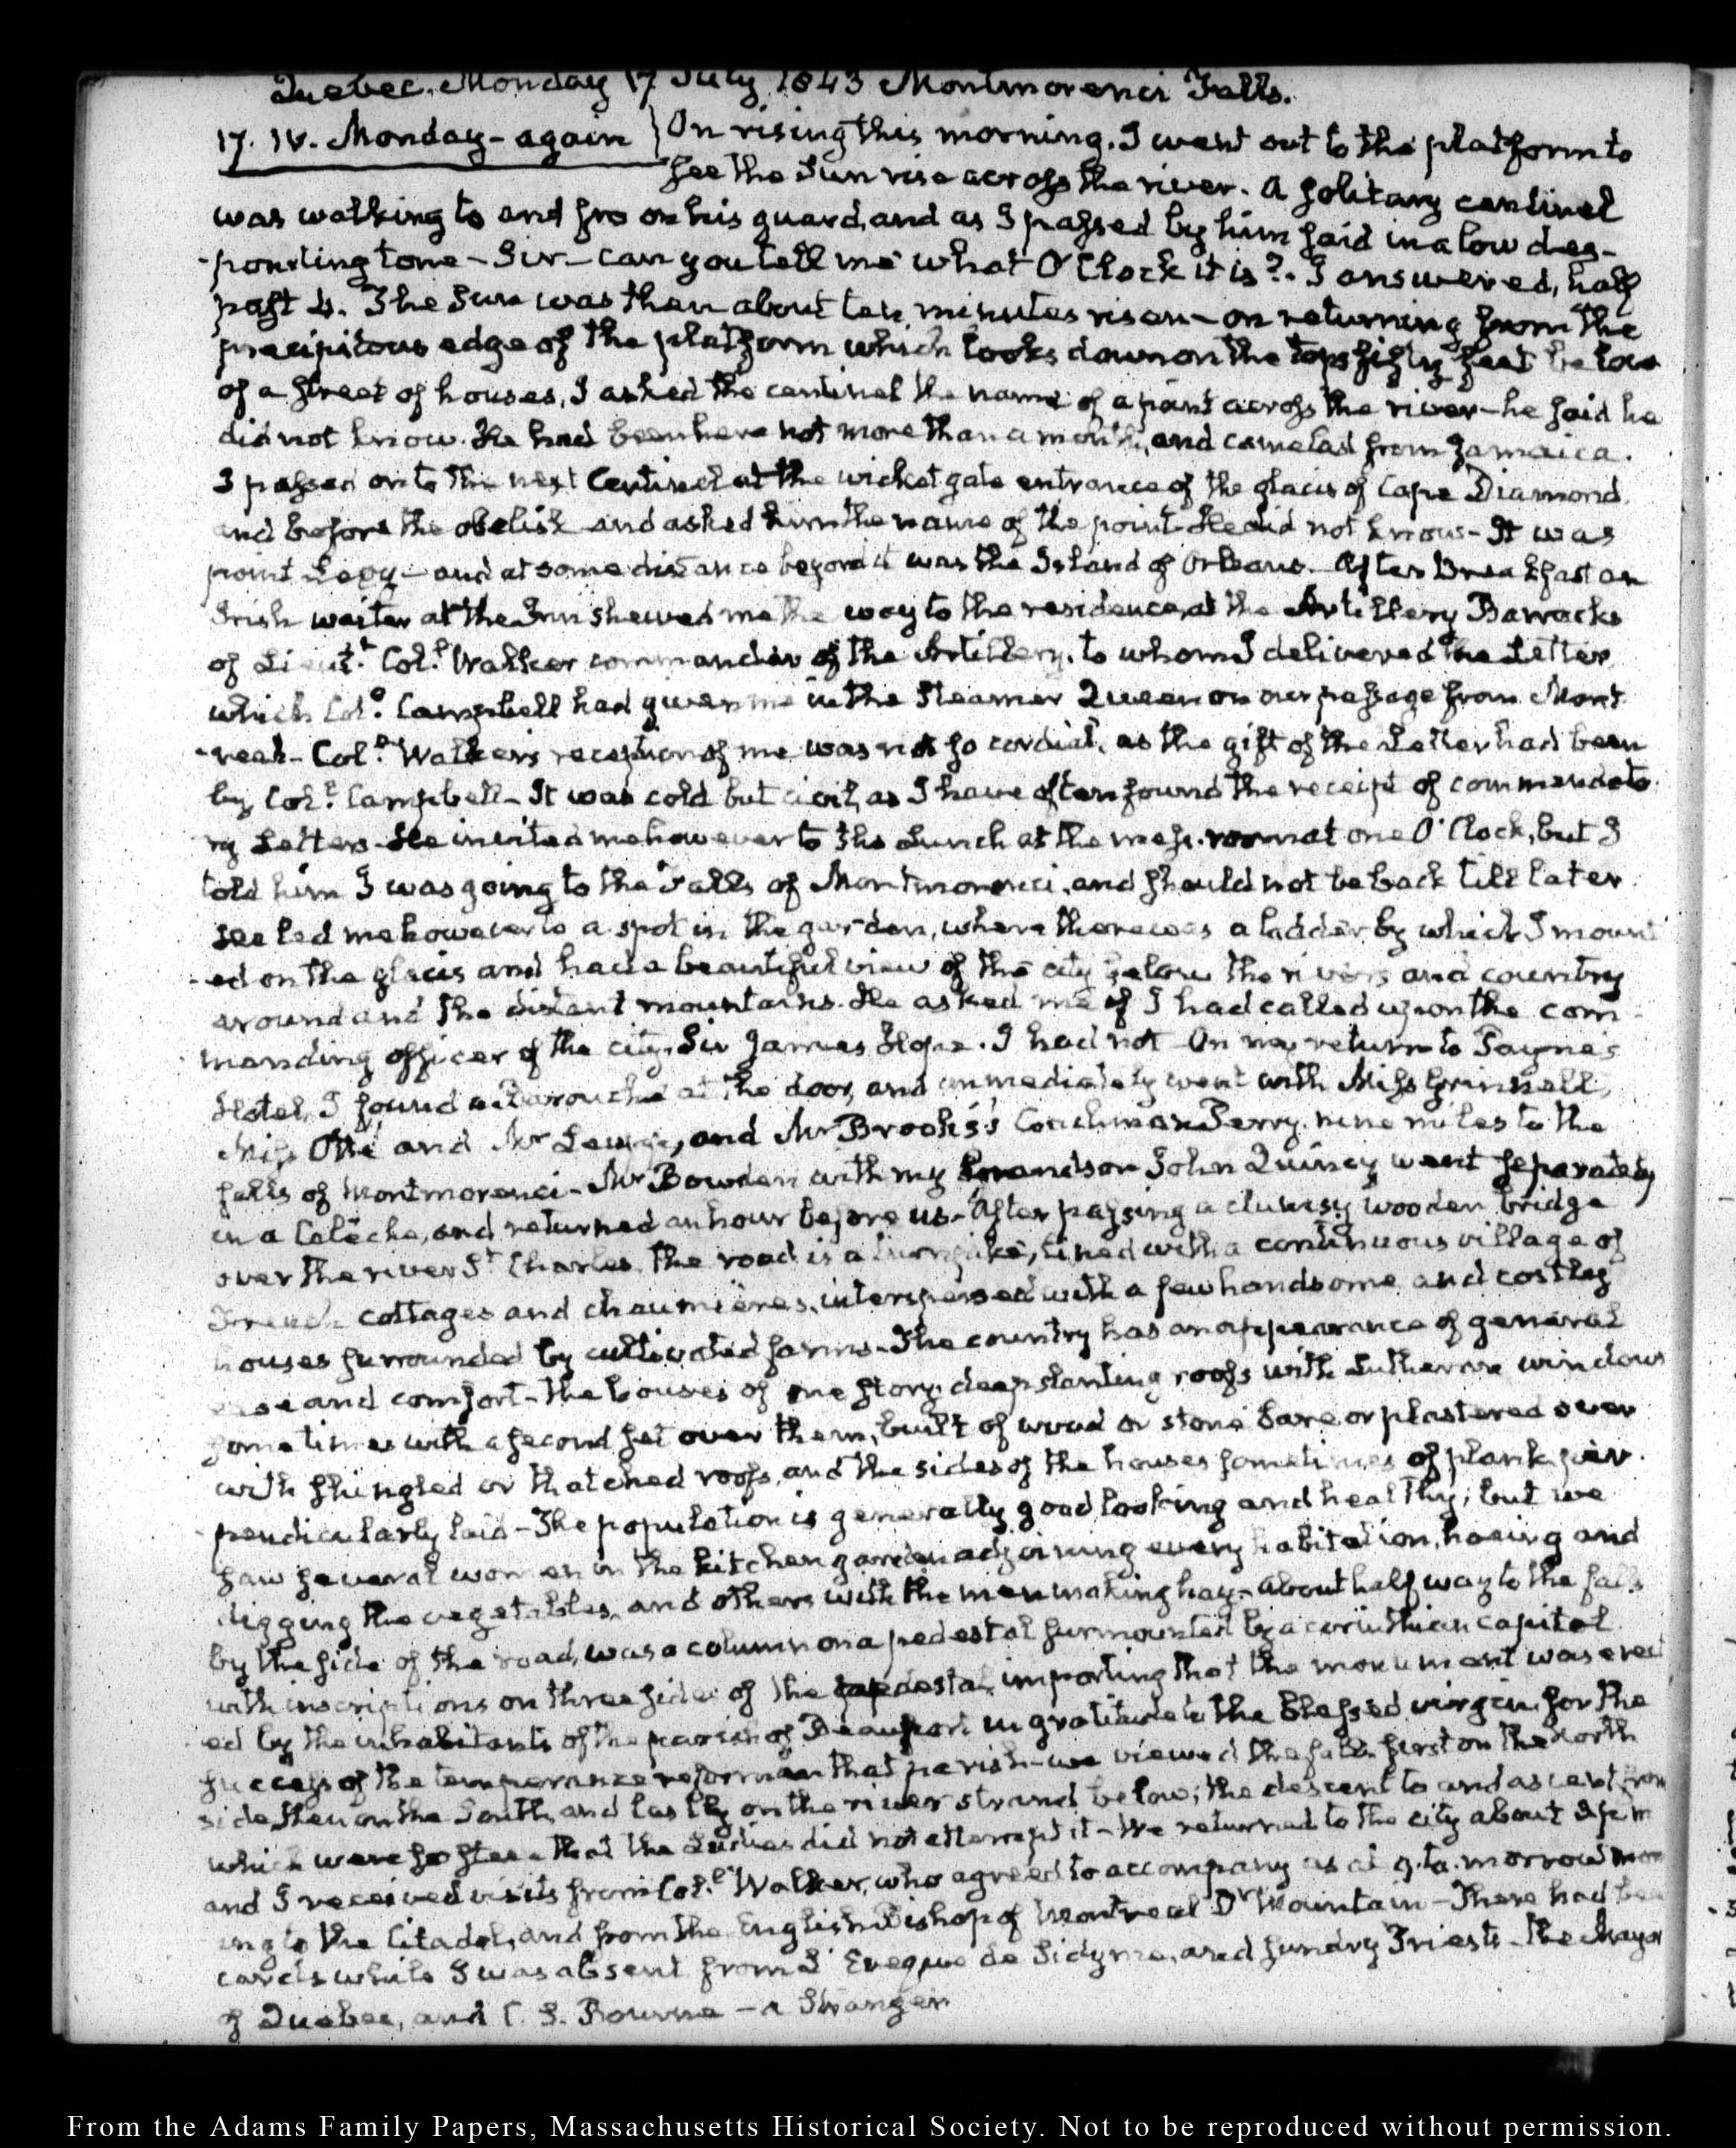 Quebec. Monday 17 July 1843 Montmorenci Falls.
17. IV. Monday - again } On rising this morning. I went out to the platform to
see the Sun rise across the river. A solitary centinel
was walking to and fro on his guard, and as I passed by him said in a low des-
-ponding tone - Sir - can you tell me what O'Clock it is?. I answered, half
past 4. The Sun was then about ten minutes risen - on returning from the
precipitous edge of the platform which looks down on the tops fifty feet below
of a street of houses, I asked the centinel the name of a point across the river - he said he
did not know. He had been here not more than a month, and came last from Jamaica.
I passed on to the next Centinel at the wicket gate entrance of the glacis of Cape Diamond
and before the obelisk and asked him the name of the point He did not know - It was
point Levy - and at some distance beyond it was the Island of Orleans. After Breakfast an
Irish waiter at the Inn shewed me the way to the residence, at the Artillery Barracks
of Lieutt. Coll. Walker commander of the Artillery, to whom I delivered the Letter
which Coll. Campbell had given me in the Steamer Queen on our passage from Mont
-real - Coll. Walker's reception of me was not so cordial, as the gift of the Letter had been
by Coll. Campbell - It was cold but civil, as I have often found the receipt of commendato-
ry Letters - He invited me however to the Lunch at the mess-room at one O'Clock, but I
told him I was going to the Falls of Montmorenci, and should not be back till later
He led me however to a spot in the garden, where there was a ladder by which I mount
-ed on the glacis and had a beautiful view of the city below the rivers and country
around and the distant mountains. He asked me if I had called upon the com-
manding officer of the city, Sir James Hope. I had not On my return to Payne's
Hotel, I found a Barouche at the door, and immediately went with Miss Grinnell,
Miss Otis and Mr Lewis, and Mr Brooks's Coachman Perry. nine miles to the
falls of Montmorenci - Mr Bowden with my Grandson John Quincy went separately
in a Caleche, and returned an hour before us - After passing a clumsy wooden bridge
over the river St Charles the road is a turnpike, lined with a continuous village of
French cottages and chaumières, interspersed with a few handsome and costly
houses surrounded by cultivated farms - The country has an appearance of general
ease and comfort - the houses of one story deep slanting roofs with Lutherne windows
sometimes with a second set over them, built of wood or stone bare or plastered over
with shingled or thatched roofs, and the sides of the houses sometimes of plank per-
-pendicularly laid - The population is generally good looking and healthy; but we
saw several women in the kitchen garden adjoining every habitation, hoeing and
digging the vegetables, and others with the men making hay - About half way to the falls
by the side of the road, was a column on a pedestal surmounted by a corinthian capital
with inscriptions on three sides of the pedestal, importing that the monument was erect
ed by the inhabitants of the parish of Beauport in gratitude to the blessed virgin for the
success of the temperance reform in that parish - we viewed the falls first on the North
side, then on the South, and lastly on the river strand below; the descent to and ascent from
which were so steep that the Ladies did not attempt it - We returned to the city about 3 p.m
and I received visits from Coll. Walker, who agreed to accompany us at 9. to-morrow morn
ing to the Citadel, and from the English Bishop of Montreal Dr Mountain - There had been
cards while I was absent from L'Eveque de Sidyme, and sundry Priests - The Mayor
of Quebec, and C. S. Bourne - a Stranger
From the Adams Family Papers, Massachusetts Historical Society. Not to be reproduced without permission.